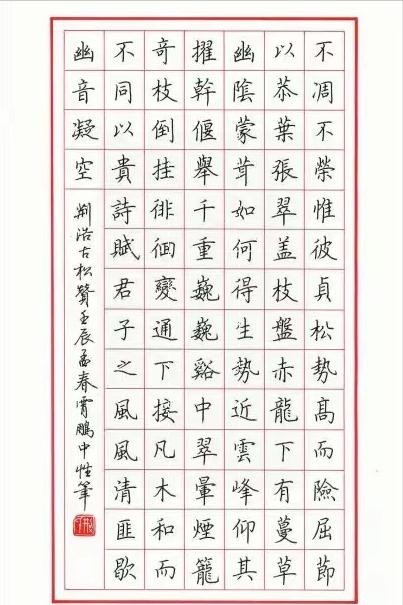 不凋不榮惟彼貞松勢髙而險屈節
以恭葉張翠盖枝盤赤龍下有蔓草
幽陰蒙茸如何得生勢近雲峰仰其
擢幹偃舉千重巍巍谿中翠暈煙籠
奇枝倒挂徘徊變通下接凡木和而
不同以貴詩賦君子之風風清匪歇
幽音凝空
荆浩古松贊壬辰孟春霄鵬中性筆